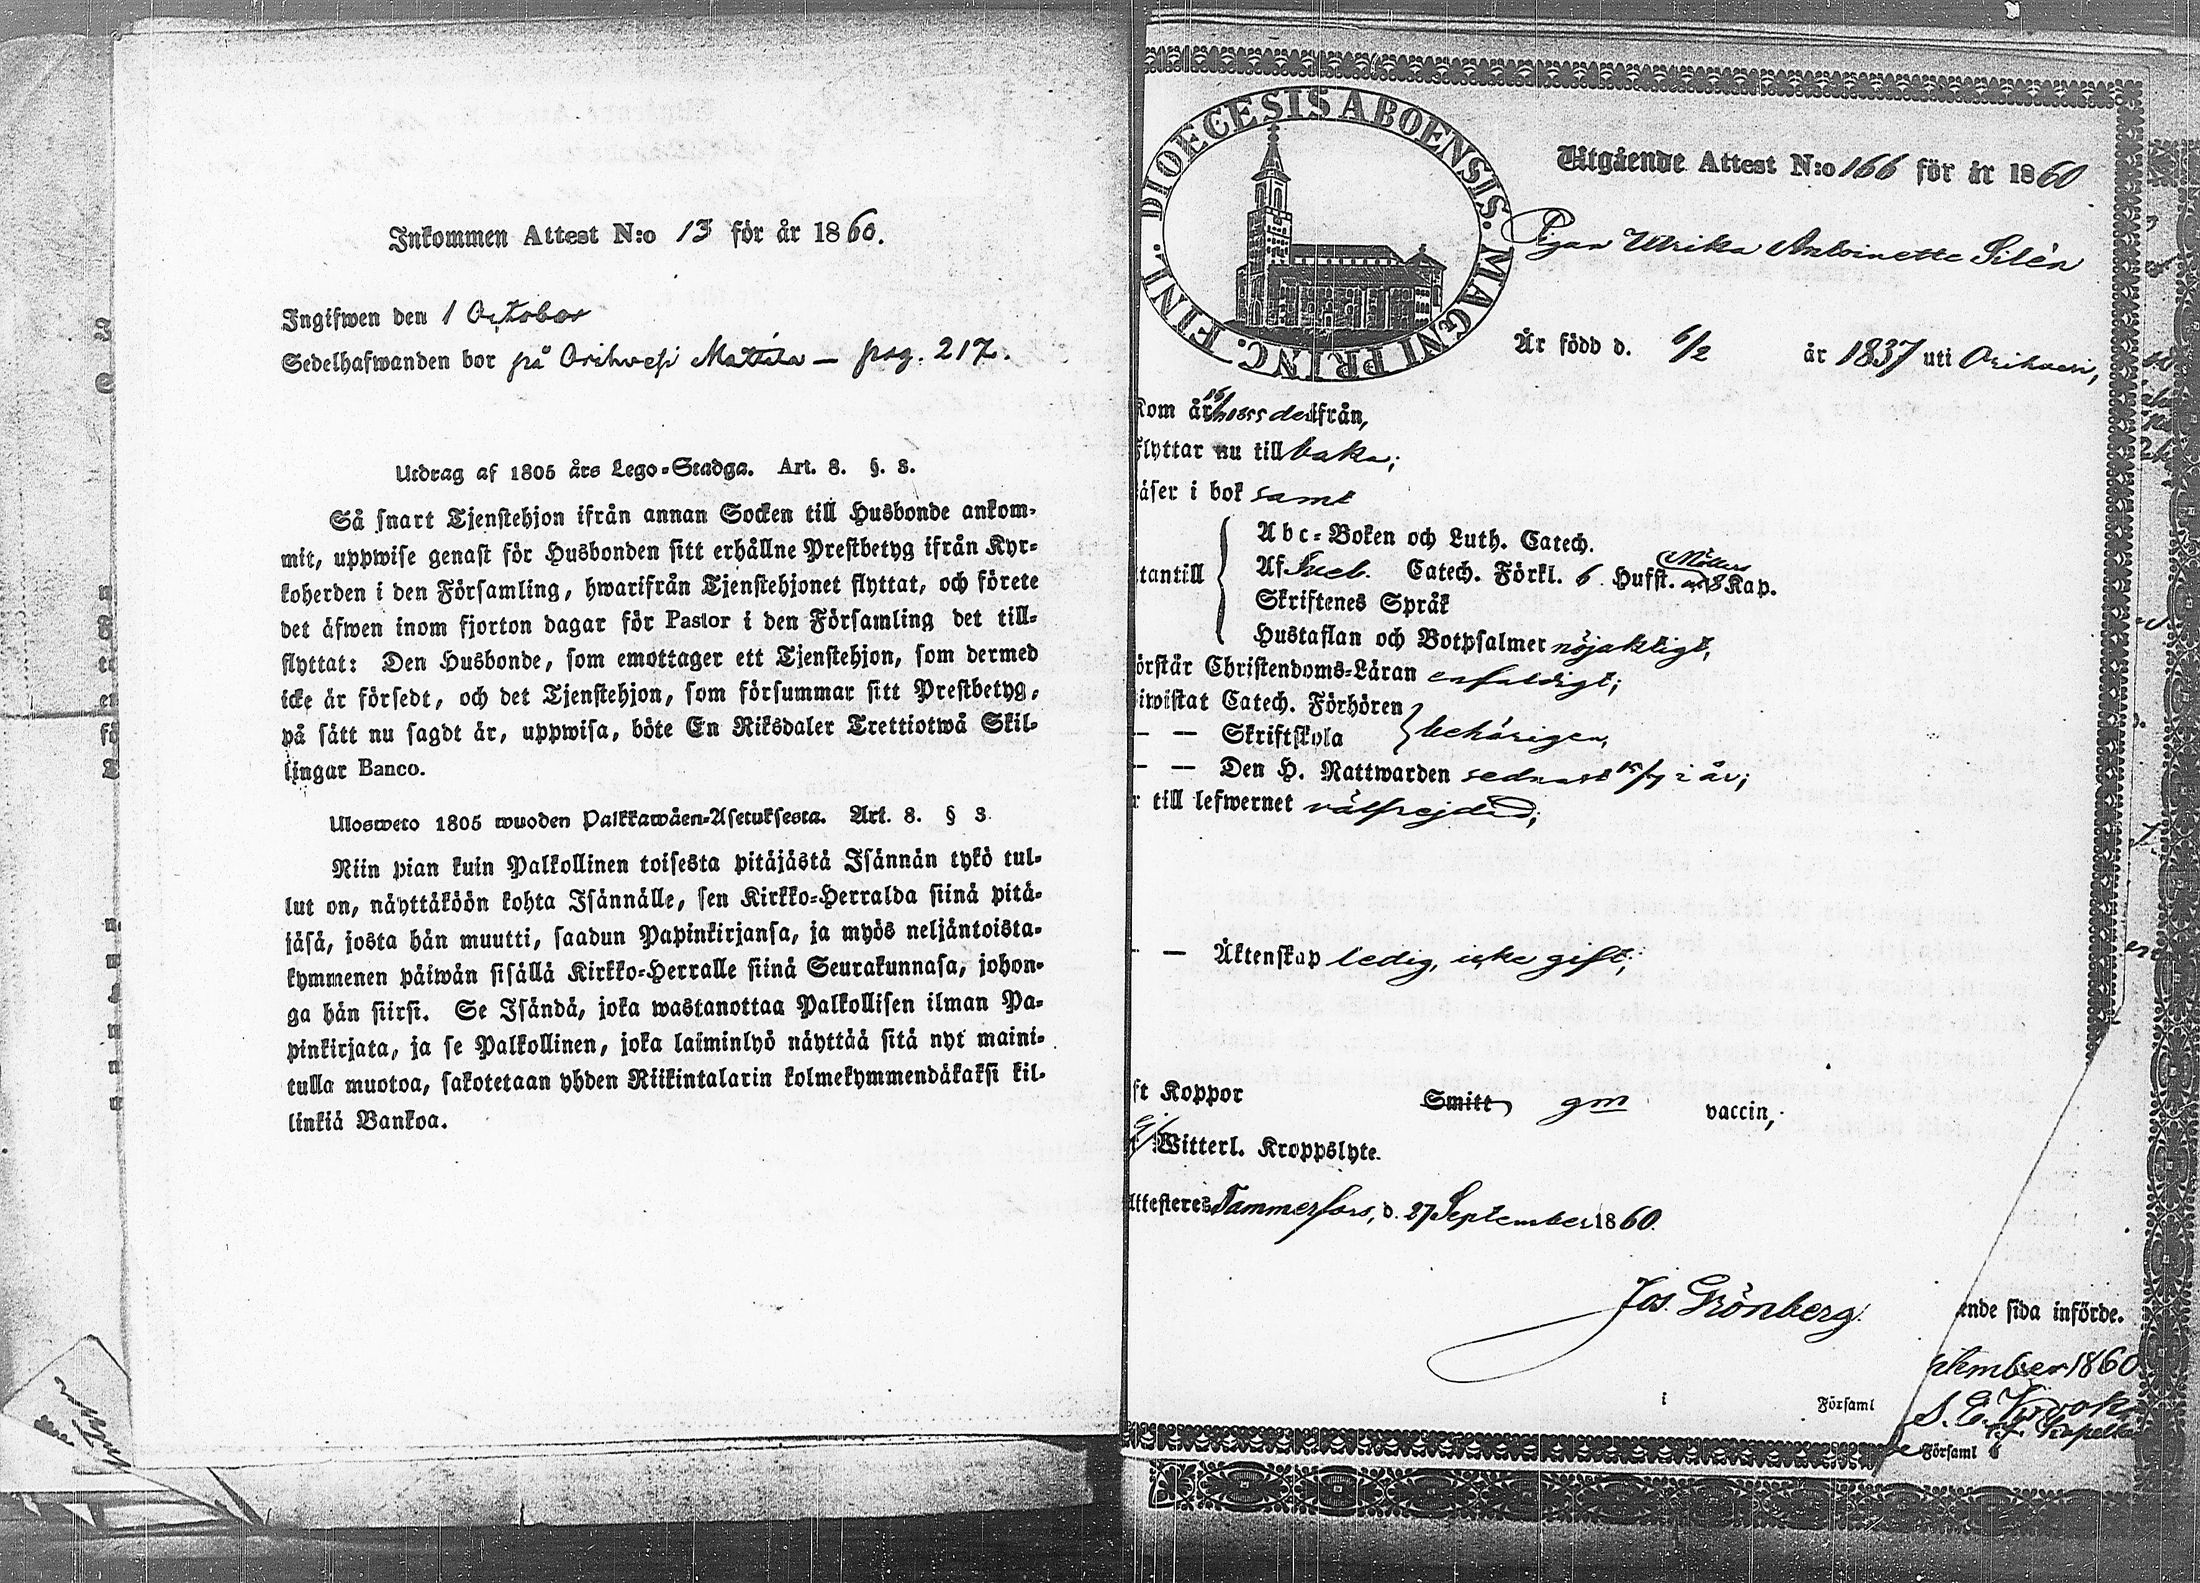 Inkommen Attest N:o 13 för år 1860.
Ingifwen den 1 October
Sedelhafwanden bor på Orihvesi Mattila — pag. 217.
Utdrag af 1805 års Lego-Stadga. Art. 8. §. 3.
Så snart Tjenstehjon ifrån annan Socken till Husbonde ankom-
mit, uppwise genast för Husbonden sitt erhållne Prestbetyg ifrån Kyr-
koherden i den Församling, hwarifrån Tjenstehjonet flyttat, och förete
det äfwen inom fjorton dagar för Pastor i den Församling det till-
flyttat: Den Husbonde, som emottager ett Tjenstehjon, som dermed
icke är försedt, och det Tjenstehjon, som försummar sitt Prestbetyg,
på sätt nu sagdt är, uppwisa, böte En Riksdaler Trettiotwå Skil-
lingar Banco.
Ulosweto 1805 wuoden Palkkawäen-Asetuksesta. Art. 8. § 3.
Niin pian kuin Palkollinen toisesta pitäjästä Isännän tykö tul-
lut on, näyttäköön kohta Isännälle, sen Kirkko-Herralda siinä pitä-
jäsä, josta hän muutti, saadun Papinkirjansa, ja myös neljäntoista-
kymmenen päiwän sisällä Kirkko-Herralle siinä Seurakunnasa, johon-
ga hän siirsi. Se Isändä, joka wastanottaa Palkollisen ilman Pa-
pinkirjata, ja se Palkollinen, joka laiminlyö näyttää sitä nyt maini-
tulla muotoa, sakotetaan yhden Riikintalarin kolmekymmendäkaksi kil-
linkiä Bankoa.
DIOECESIS ABOENSIS. MAGNI PRINC. FINL.
Utgående Attest N:o 166 för år 1860
Pigan Ulrika Antoinette Silén
Är född d. 6/2 år 1837 uti Orihvesi,
kom år 1855 derifrån,
flyttar nu till baka;
läser i bok samt
Abc-Boken och Luth. Catech.
utantill Af Sveb. Catech. Förkl. 6 Hufst. Möllers 8 Kap.
Skriftenes Språk
Hustaflan och Botpsalmer nöjaktigt,
förstår Christendoms-Läran enfaldigt;
biwistat Catech. Förhören
— — Skriftskola behörigen,
— — Den H. Nattwarden sednast 15/7 i år;
är till lefwernet välfrejdad;
— — Äktenskap ledig, icke gift;
haft Koppor Smitt, gm vaccin,
Witterl. Kroppslyte.
Attesteres Tammerfors, d. 27 September 1860.
Jos. Grönberg.
ende sida införde.
ptember 1860
i Församl
Församl